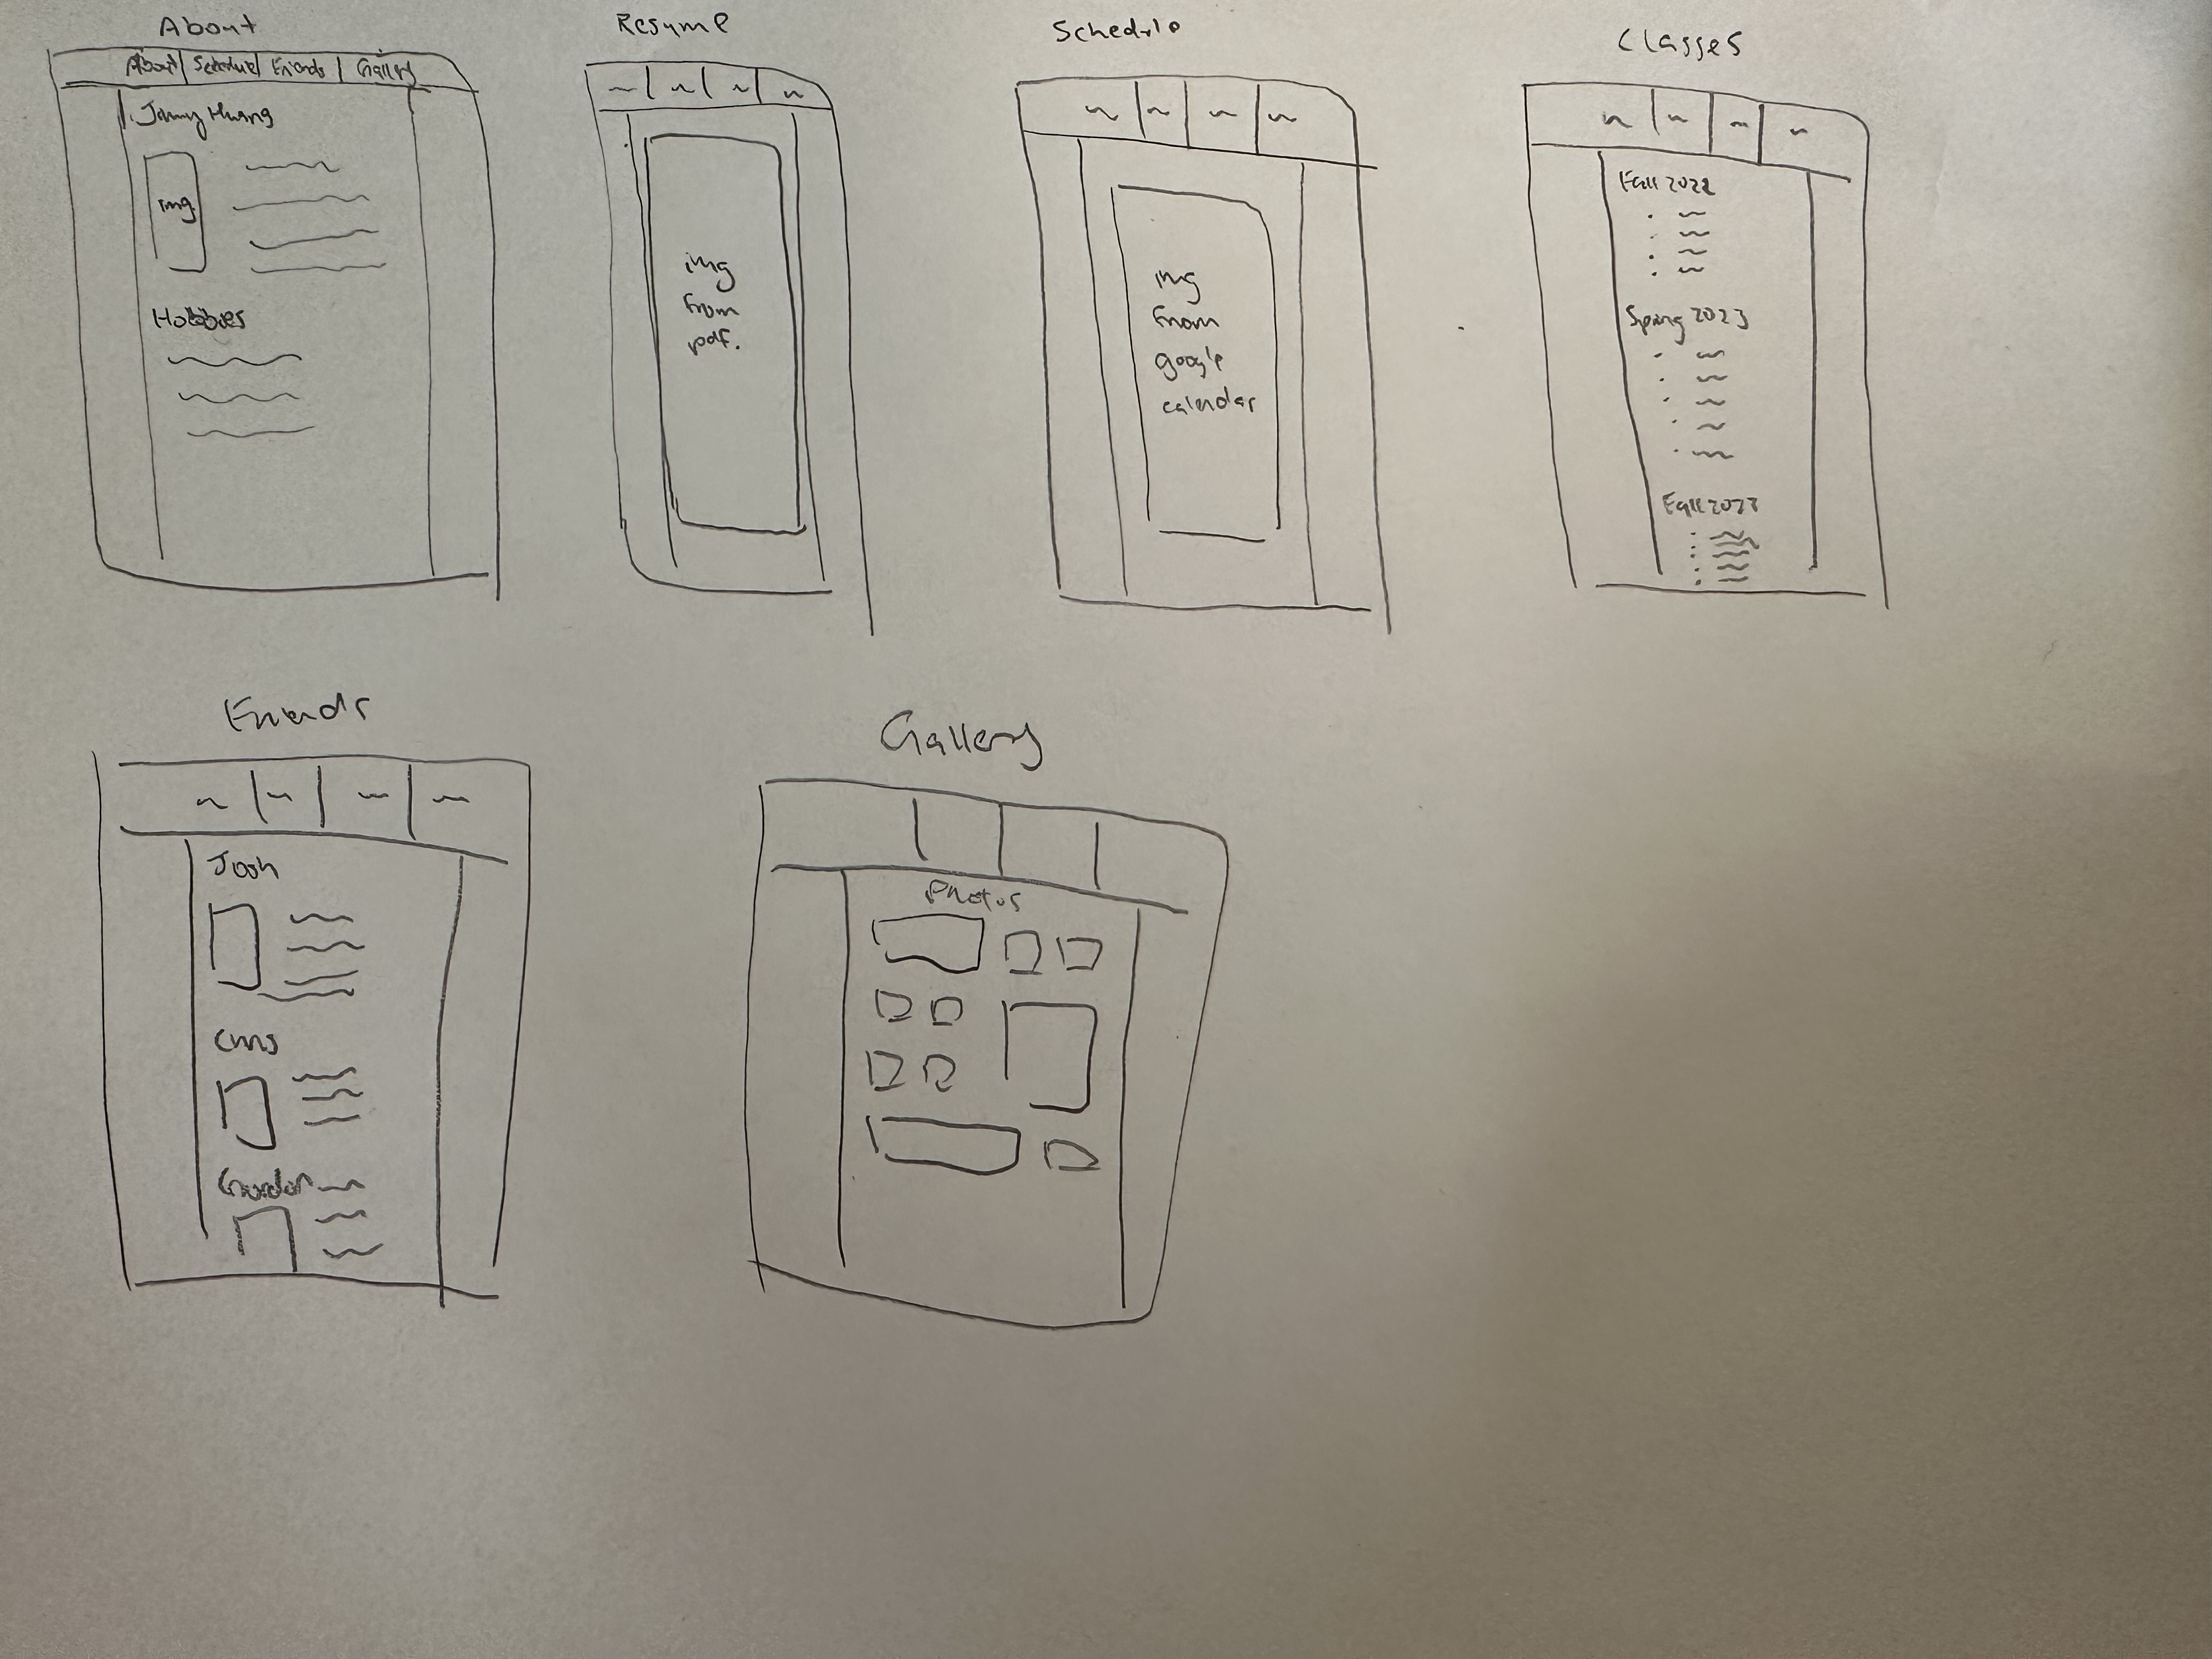 About
About Schedule Friends Gallery
Huang
img
Hobbies
Resume
img
from
pdf.
Schedule
img
from
google
calendar
Classes
Fall 2022
Spring 2023
Fall 2023
Friends
Josh
Chris
Gordon
Gallery
Photos